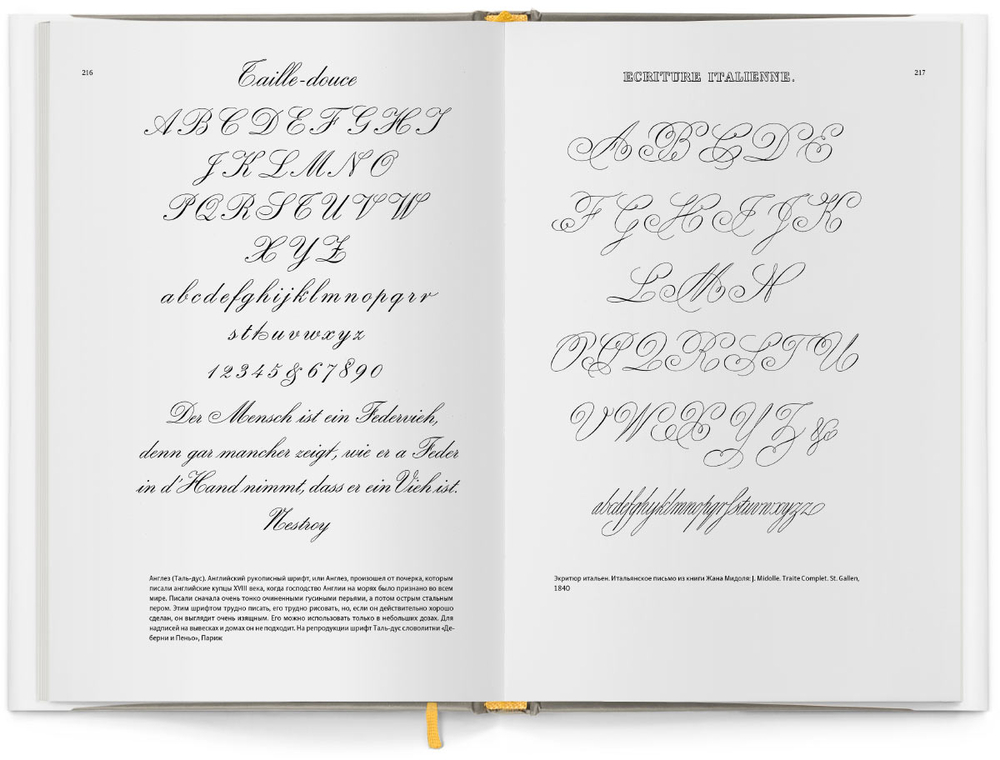 216
Taille-douce
A B C D E F G H I
J K L M N O
P Q R S T U V W
X Y Z
a b c d e f g h i j k l m n o p q r r
s t t u v w x y z
1 2 3 4 5 & 6 7 8 9 0
Der Mensch ist ein Federvieh,
denn gar mancher zeigt, wie er a Feder
in d'Hand nimmt, dass er ein Vieh ist.
Nestroy
Англез (Таль-дус). Английский рукописный шрифт, или Англез, произошел от почерка, которым
писали английские купцы XVIII века, когда господство Англии на морях было признано во всем
мире. Писали сначала очень тонко очиненными гусиными перьями, а потом острым стальным
пером. Этим шрифтом трудно писать, его трудно рисовать, но, если он действительно хорошо
сделан, он выглядит очень изящным. Его можно использовать только в небольших дозах. Для
надписей на вывесках и домах он не подходит. На репродукции шрифт Таль-дус словолитни «Де-
берни и Пеньо», Париж
217
ECRITURE ITALIENNE.
A B C D E
F G H I J K
L M N
O P Q R S T U
V W X Y Z &
Экритюр итальен. Итальянское письмо из книги Жана Мидоля: J. Midolle. Traite Complet. St. Gallen,
1840